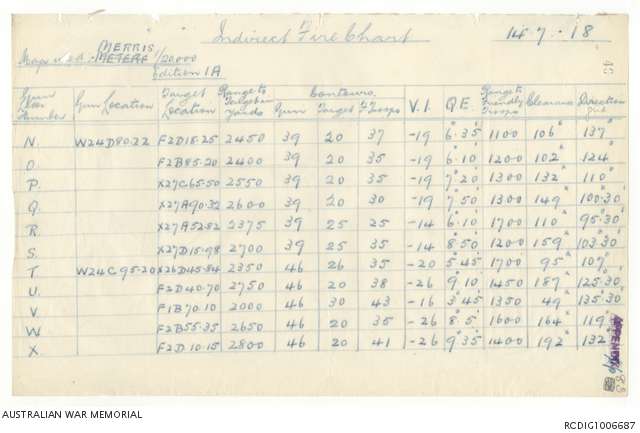 Indirect Fire Chart 14.7.18
MERRIS
Maps used:- METEREN 1/20000
Edition 1A
Gun Number Gun Location Target Location Range to Target in Yards Contours Gun Target F. Troops V.I. Q.E. Range to Friendly Troops Clearance Direction
N. W24D80.22 F2D15.25 2450 39 20 37 -19 6°35' 1100 106" 137°
O F2B85.20 2400 39 20 35 -19 6°10' 1200 102" 124°
P. X27C65.50 2550 39 20 35 -19 7°20' 1300 132" 110°
Q. X27A90.32 2600 39 20 30 -19 7°50' 1300 149" 100°30'
R X27A52.52 2375 39 25 25 -14 6°10' 1700 110" 95°30'
S. X27D15.98 2700 39 25 35 -14 8°50' 1200 159" 103°30'
T W24C95.20 X26D45.84 2350 46 26 35 -20 5°45' 1700 95" 107°
U. F2D40.70 2750 46 20 38 -26 9°10' 1450 187" 125°30'
V. F1B70.10 2000 46 30 43 -16 3°45' 1350 49" 135°30'
W F2B55.35 2650 46 20 35 -26 8°5' 1600 164" 119°
X. F2D.10.15 2800 46 20 41 -26 9°35' 1400 192" 132°
APPENDIX
AUSTRALIAN WAR MEMORIAL RCDIG1006687